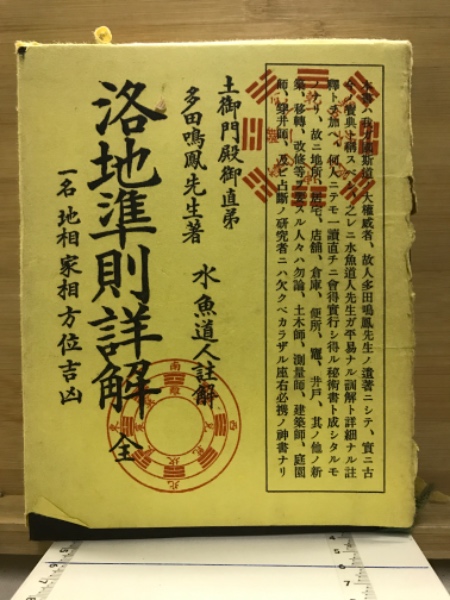 本書ハ我ガ國斯道ノ大權威者、故人多田鳴鳳先生ノ遺著ニシテ、實ニ古
今ノ寶典ト稱スベシ、之レニ水魚道人先生ガ平易ナル訓解ト詳細ナル註
釋トヲ加ヘ、何人ニテモ一讀直チニ會得實行シ得ル秘術書ト成シタルモ
ノナリ、故ニ地所、居宅、店舗、倉庫、便所、竈、井戸、其ノ他ノ新
築、移轉、改修等ヲ要スル人々ハ勿論、土木師、測量師、建築師、庭園
師、鑿井師、及ビ占斷ノ研究者ニハ欠クベカラザル座右必携ノ神書ナリ
土御門殿御直弟
多田鳴鳳先生著
水魚道人註解
洛地準則詳解 全
一名 地相家相方位吉凶
南
北